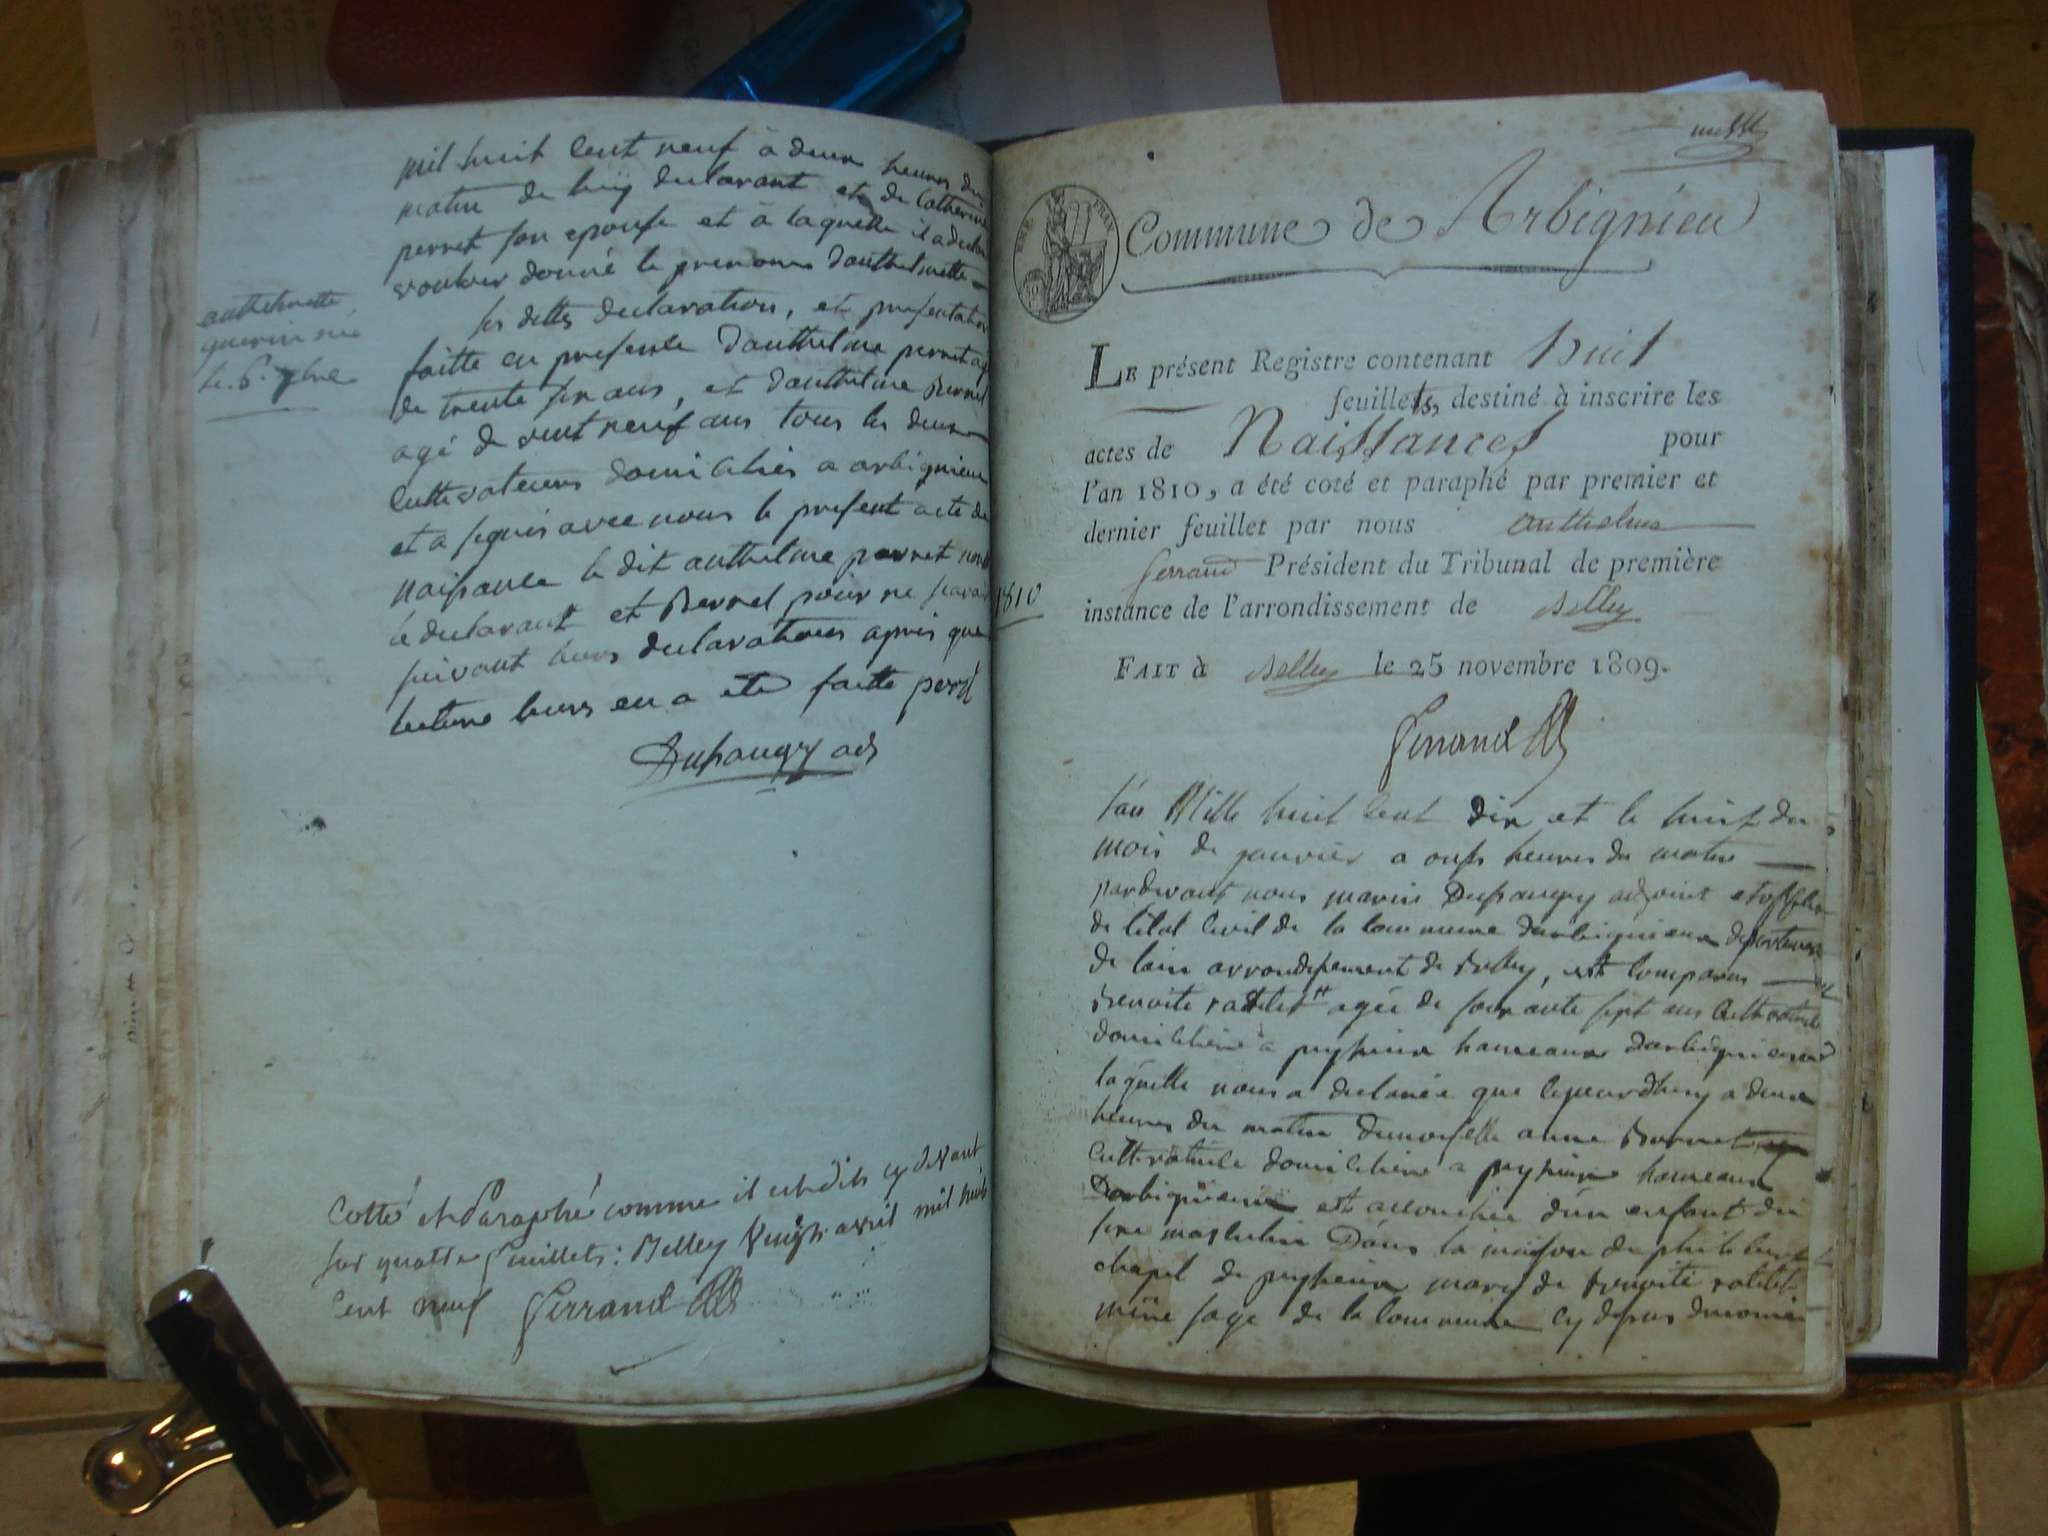 mil huit cent neuf à deux heures du
matin de luy declarant et de Catherine
perret son epouse et à laquelle il a declaré
vouloir donné le prenom d'anthelmette
les dittes declaration, et presentation
faitte en presence d'anthelme perret agé
de trente six ans, et d'anthelme Bernel
agé de vint neuf ans tous les deux
cultivateurs domicilies a arbignieux
et a signés avec nous le present acte de
naissance le dit anthelme perret non
le declarant et Bernel pour ne savoir
suivant leurs declarations apres que
lecture leurs en a été faitte
Dupaugy adj
anthelmette
guerin née
le 6. 7bre
Cotté et Paraphé comme il est dit cy devant
sur quatre feuillets: Belley Vingt avril mil huit
cent neuf Gerrand
EMP. FRAN.
Commune de Arbignieu
Le présent Registre contenant huit
feuillets, destiné à inscrire les
actes de Naissances pour
l'an 1810, a été coté et paraphé par premier et
dernier feuillet par nous anthelme
Gerrand Président du Tribunal de première
1810
instance de l'arrondissement de Belley
Fait à Belley le 25 novembre 1809.
Gerrand
l'an Mille huit cent dix et le huit du
mois de janvier a onze heures du matin
pardevant nous marin Dupaugy adjoint et officier
de l'etat Civil de la commune d'arbignieux departement
de l'ain arrondissement de Belley, est comparus
Benoite agée de soixante sept ans Cultivatrice
domiciliée a peyzieux hameaux d'arbignieux
laquelle nous a declarée que cejourdhuy a deux
heures du matin demoiselle anne Bornet
Cultivatrice domiciliée a peyzieux hameaux
D'arbignieux est accouchée d'un enfant du
sexe masculin Dans la maison de philibert
chapel de peyzieux mary de Benoite
mere sage de la commune cy dessus